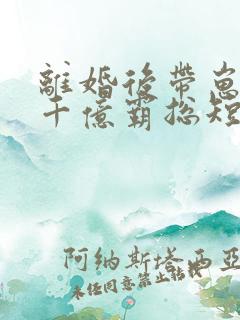 離婚後帶崽
千億霸總短
阿納斯塔西亞
未经同意禁止转载